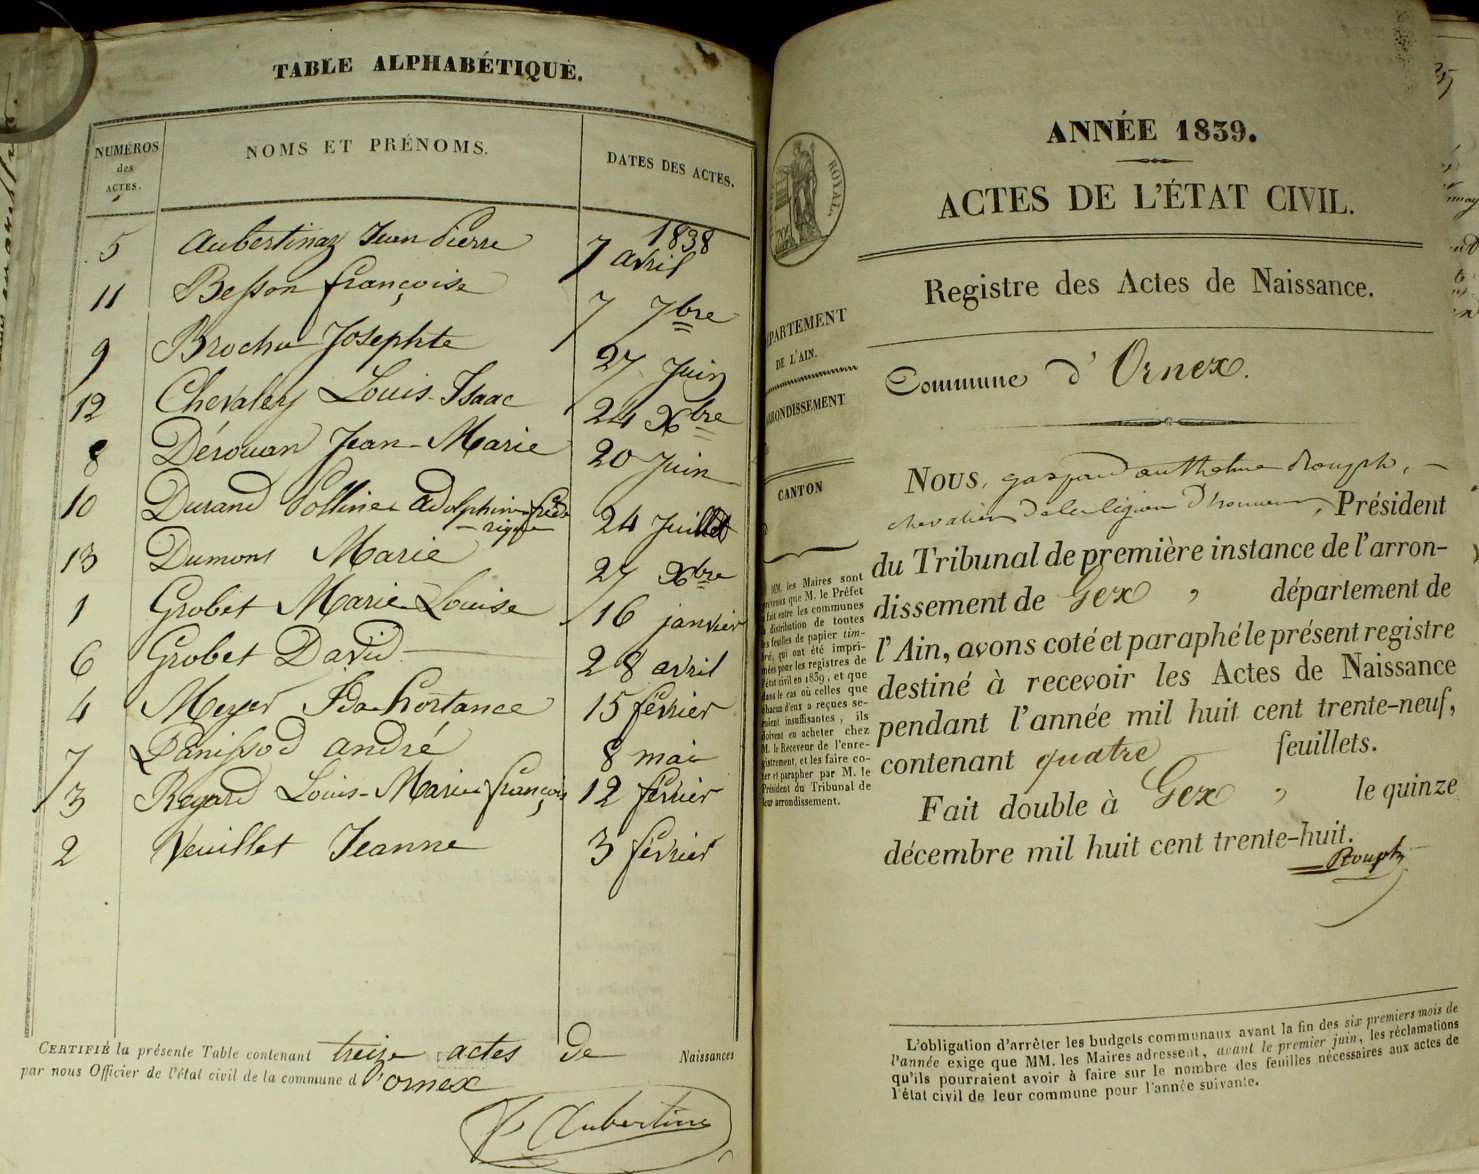 TABLE ALPHABÉTIQUE.
NUMÉROS des ACTES.
NOMS ET PRÉNOMS.
DATES DES ACTES.
1838
5 Aubertinaz Jean Pierre 7 avril
11 Besson françoise 7 7bre
9 Brochu Josephte 27 Juin
12 Chevaley Louis Isaac 24 Xbre
8 Dérouan Jean-Marie 20 Juin
10 Durand Polline adolphine fréde
-rique 24 Juillet
13 Dumons Marie 27 Xbre
1 Grobet Marie Louise 16 janvier
6 Grobet David 28 avril
4 Meyer Ida hortance 15 février
7 Panissod andré 8 mai
3 Regard Louis-Marie françois 12 février
2 Veuillet Jeanne 3 février
CERTIFIÉ la présente Table contenant treize actes de Naissances
par nous Officier de l'état civil de la commune d'ornex
Aubertin
ROYAL.
ANNÉE 1839.
ACTES DE L'ÉTAT CIVIL.
Registre des Actes de Naissance.
PARTEMENT
DE L'AIN.
RONDISSEMENT
CANTON
MM. les Maires sont
que M. le Préfet
fait entre les communes
distribution de toutes
feuilles de papier tim-
bré, qui ont été impri-
mées pour les registres de
l'état civil en 1839, et que
dans le cas où celles que
chacun d'eux a reçues se-
raient insuffisantes, ils
doivent en acheter chez
M. le Receveur de l'enre-
gistrement, et les faire co-
ter et parapher par M. le
Président du Tribunal de
leur arrondissement.
Commune d'Ornex.
NOUS, gaspard anthelme Rouph,
chevalier de la légion d'honneur, Président
du Tribunal de première instance de l'arron-
dissement de Gex, département de
l'Ain, avons coté et paraphé le présent registre
destiné à recevoir les Actes de Naissance
pendant l'année mil huit cent trente-neuf,
contenant quatre feuillets.
Fait double à Gex, le quinze
décembre mil huit cent trente-huit.
Rouph
L'obligation d'arrêter les budgets communaux avant la fin des six premiers mois de
l'année exige que MM. les Maires adressent, avant le premier juin, les réclamations
qu'ils pourraient avoir à faire sur le nombre des feuilles nécessaires aux actes de
l'état civil de leur commune pour l'année suivante.